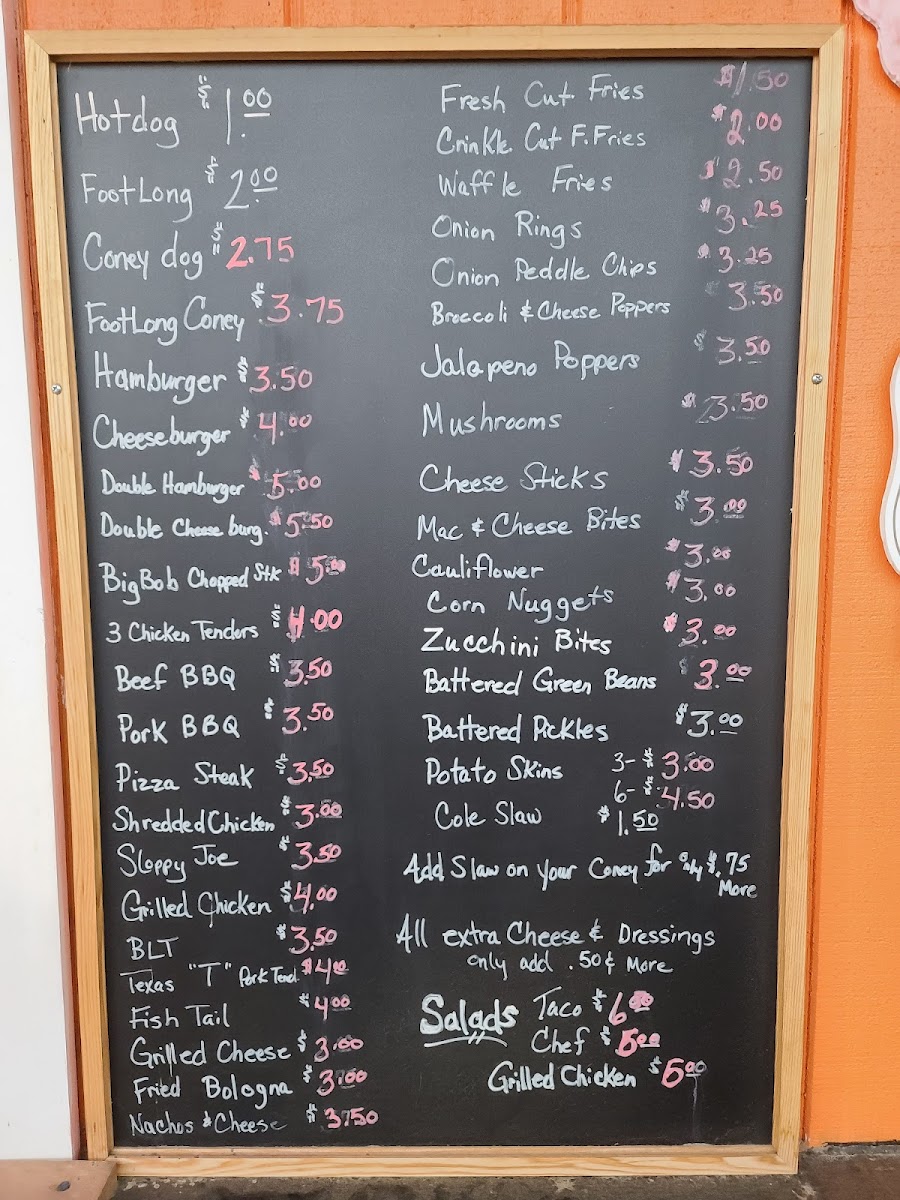 Hotdog $1.00
FootLong $2.00
Coney dog $2.75
FootLong Coney $3.75
Hamburger $3.50
Cheeseburger $4.00
Double Hamburger $5.00
Double Cheese burg. $5.50
BigBob Chopped Stk $5.00
3 Chicken Tendors $4.00
Beef BBQ $3.50
Pork BBQ $3.50
Pizza Steak $3.50
Shredded Chicken $3.00
Sloppy Joe $3.50
Grilled Chicken $4.00
BLT $3.50
Texas "T" Pork Tend. $4.00
Fish Tail $4.00
Grilled Cheese $3.00
Fried Bologna $3.00
Nachos & Cheese $3.50
Fresh Cut Fries $1.50
Crinkle Cut F.Fries $2.00
Waffle Fries $2.50
Onion Rings $3.25
Onion Peddle Chips $3.25
Broccoli & Cheese Poppers $3.50
Jalapeno Poppers $3.50
Mushrooms $3.50
Cheese Sticks $3.50
Mac & Cheese Bites $3.00
Cauliflower $3.00
Corn Nuggets $3.00
Zucchini Bites $3.00
Battered Green Beans $3.00
Battered Pickles $3.00
Potato Skins 3- $3.00
6- $4.50
Cole Slaw $1.50
Add Slaw on your Coney for only $.75
More
All extra Cheese & Dressings
only add .50¢ More
Salads Taco $6.00
Chef $5.00
Grilled Chicken $6.00